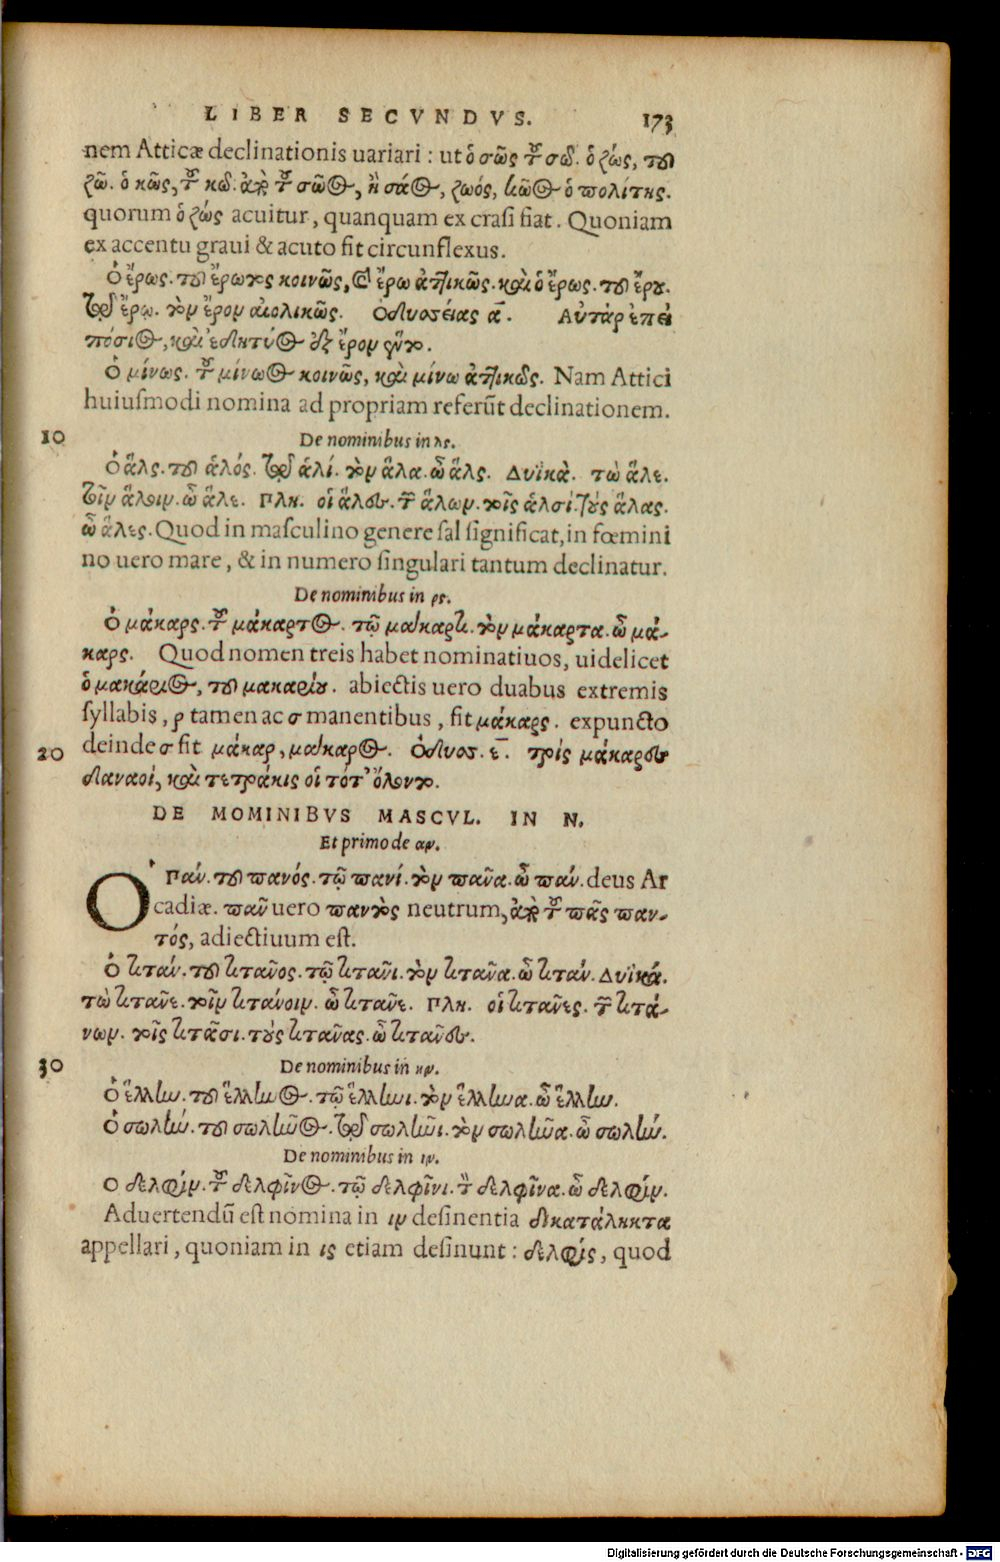 LIBER SECVNDVS. 173
nem Atticæ declinationis uariari : ut ὁ σῶς τοῦ σῶ. ὁ ζώς, τοῦ
ζῶ. ὁ κῶς, τοῦ κῶ. ἀπὸ τοῦ σῶος, ἢ σάος, ζωός, κῶος ὁ πολίτης.
quorum ὁ ζώς acuitur, quanquam ex crasi fiat. Quoniam
ex accentu graui & acuto fit circunflexus.
Ὁ ἔρως. τοῦ ἔρωτος κοινῶς, καὶ ἔρω ἀττικῶς. καὶ ὁ ἔρως. τοῦ ἔρου.
τῷ ἔρῳ. τὸν ἔρον αἰολικῶς. Οδυσσείας α̅. Αὐτὰρ ἐπεὶ
πόσιος, καὶ ἐδητύος ἐξ ἔρον ἕντο.
Ὁ μίνως. τοῦ μίνωος κοινῶς, καὶ μίνω ἀττικῶς. Nam Attici
huiusmodi nomina ad propriam referūt declinationem.
10 De nominibus in λς.
Ὁ ἅλς. τοῦ ἁλός. τῷ ἁλί. τὸν ἅλα. ὦ ἅλς. Δυϊκὰ. τὼ ἅλε.
τοῖν ἅλοιν. ὦ ἅλε. Πλη. οἱ ἅλες. τῶν ἅλων. τοῖς ἁλσί. τοὺς ἅλας.
ὦ ἅλες. Quod in masculino genere sal significat, in fœmini
no uero mare, & in numero singulari tantum declinatur.
De nominibus in ρς.
Ὁ μάκαρς. τοῦ μάκαρτος. τῷ μάκαρτι. τὸν μάκαρτα. ὦ μά-
καρς. Quod nomen treis habet nominatiuos, uidelicet
ὁ μακάριος, τοῦ μακαρίου. abiectis uero duabus extremis
syllabis, ρ tamen ac σ manentibus, fit μάκαρς. expuncto
20 deinde σ fit μάκαρ, μάκαρος. Ὀδυσσ. ε̅. τρὶς μάκαρες
δαναοί, καὶ τετράκις οἱ τότ' ὄλοντο.
DE MOMINIBVS MASCVL. IN N.
Et primo de αν.
Ὁ Πάν. τοῦ πανός. τῷ πανί. τὸν πᾶνα. ὦ πάν. deus Ar
cadiæ. πᾶν uero παντὸς neutrum, ἀπὸ τοῦ πᾶς παν-
τός, adiectiuum est.
Ὁ τιτάν. τοῦ τιτᾶνος. τῷ τιτᾶνι. τὸν τιτᾶνα. ὦ τιτάν. Δυϊκά.
τὼ τιτᾶνε. τοῖν τιτάνοιν. ὦ τιτᾶνε. Πλη. οἱ τιτᾶνες. τῶν τιτά-
νων. τοῖς τιτᾶσι. τοὺς τιτᾶνας. ὦ τιτᾶνες.
30 De nominibus in ην.
Ὁ ἕλλην. τοῦ ἕλληνος. τῷ ἕλληνι. τὸν ἕλληνα. ὦ ἕλλην.
Ὁ σωλήν. τοῦ σωλῆνος. τῷ σωλῆνι. τὸν σωλῆνα. ὦ σωλήν.
De nominibus in ιν.
Ο δελφίν. τοῦ δελφῖνος. τῷ δελφῖνι. τὸν δελφῖνα. ὦ δελφίν.
Aduertendū est nomina in ιν desinentia δικατάληκτα
appellari, quoniam in ις etiam desinunt : δελφίς, quod
Digitalisierung gefördert durch die Deutsche Forschungsgemeinschaft - DFG